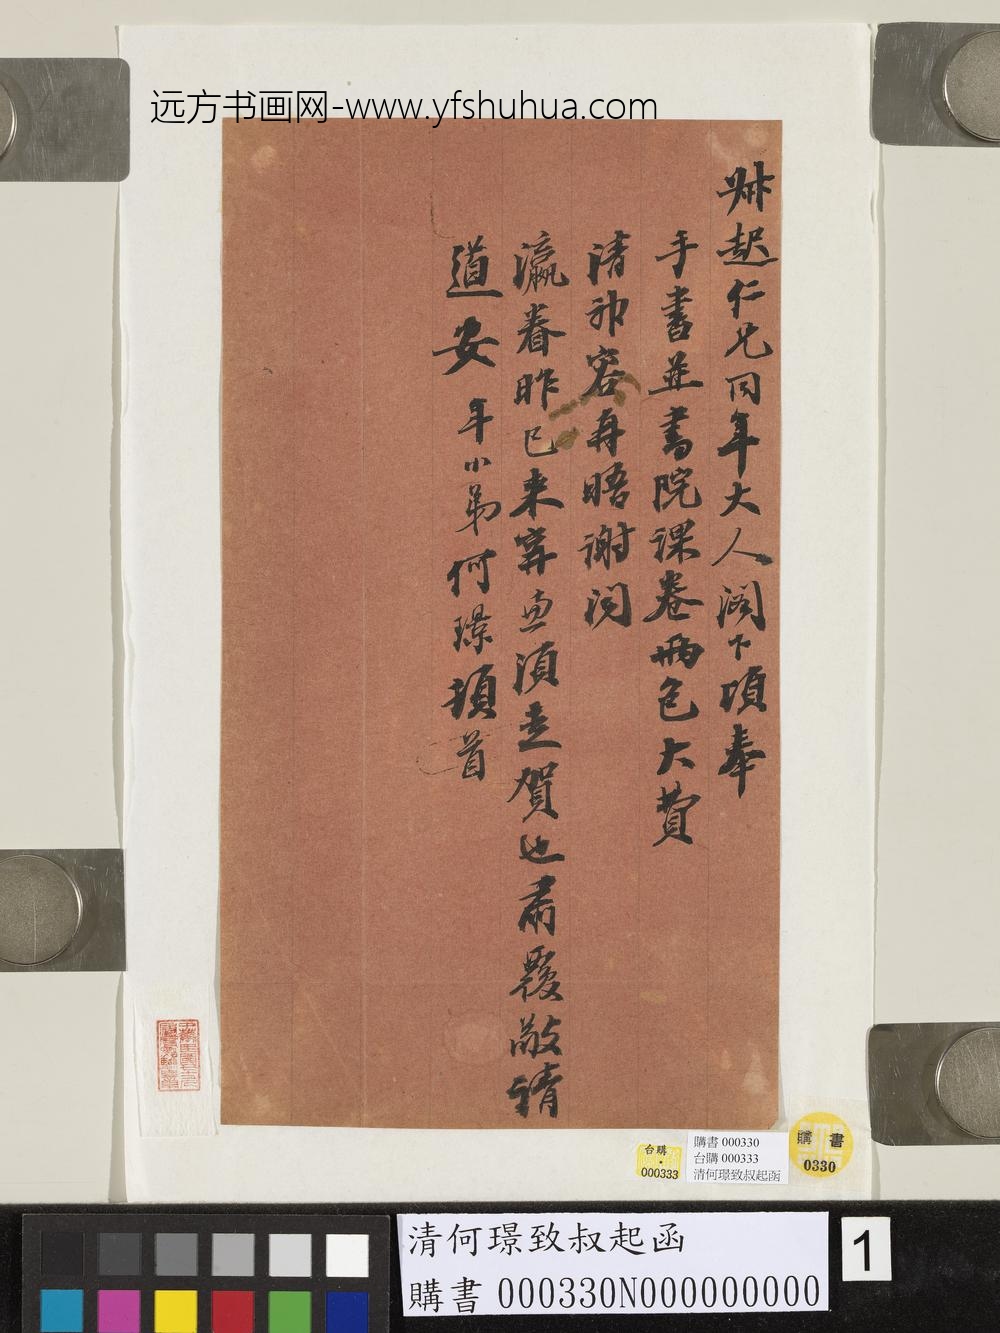 远方书画网-www.yfshuhua.com
尗起仁兄同年大人阁下頃奉
手書並書院課卷兩包大費
清神容再晤謝聞
瀛眷昨已來寧亟須走賀也肅覆敬請
道安 年小弟何璟頓首
台購
000333
購書 000330
台購 000333
清何璟致叔起函
購書
0330
清何璟致叔起函
購書 000330N000000000
1